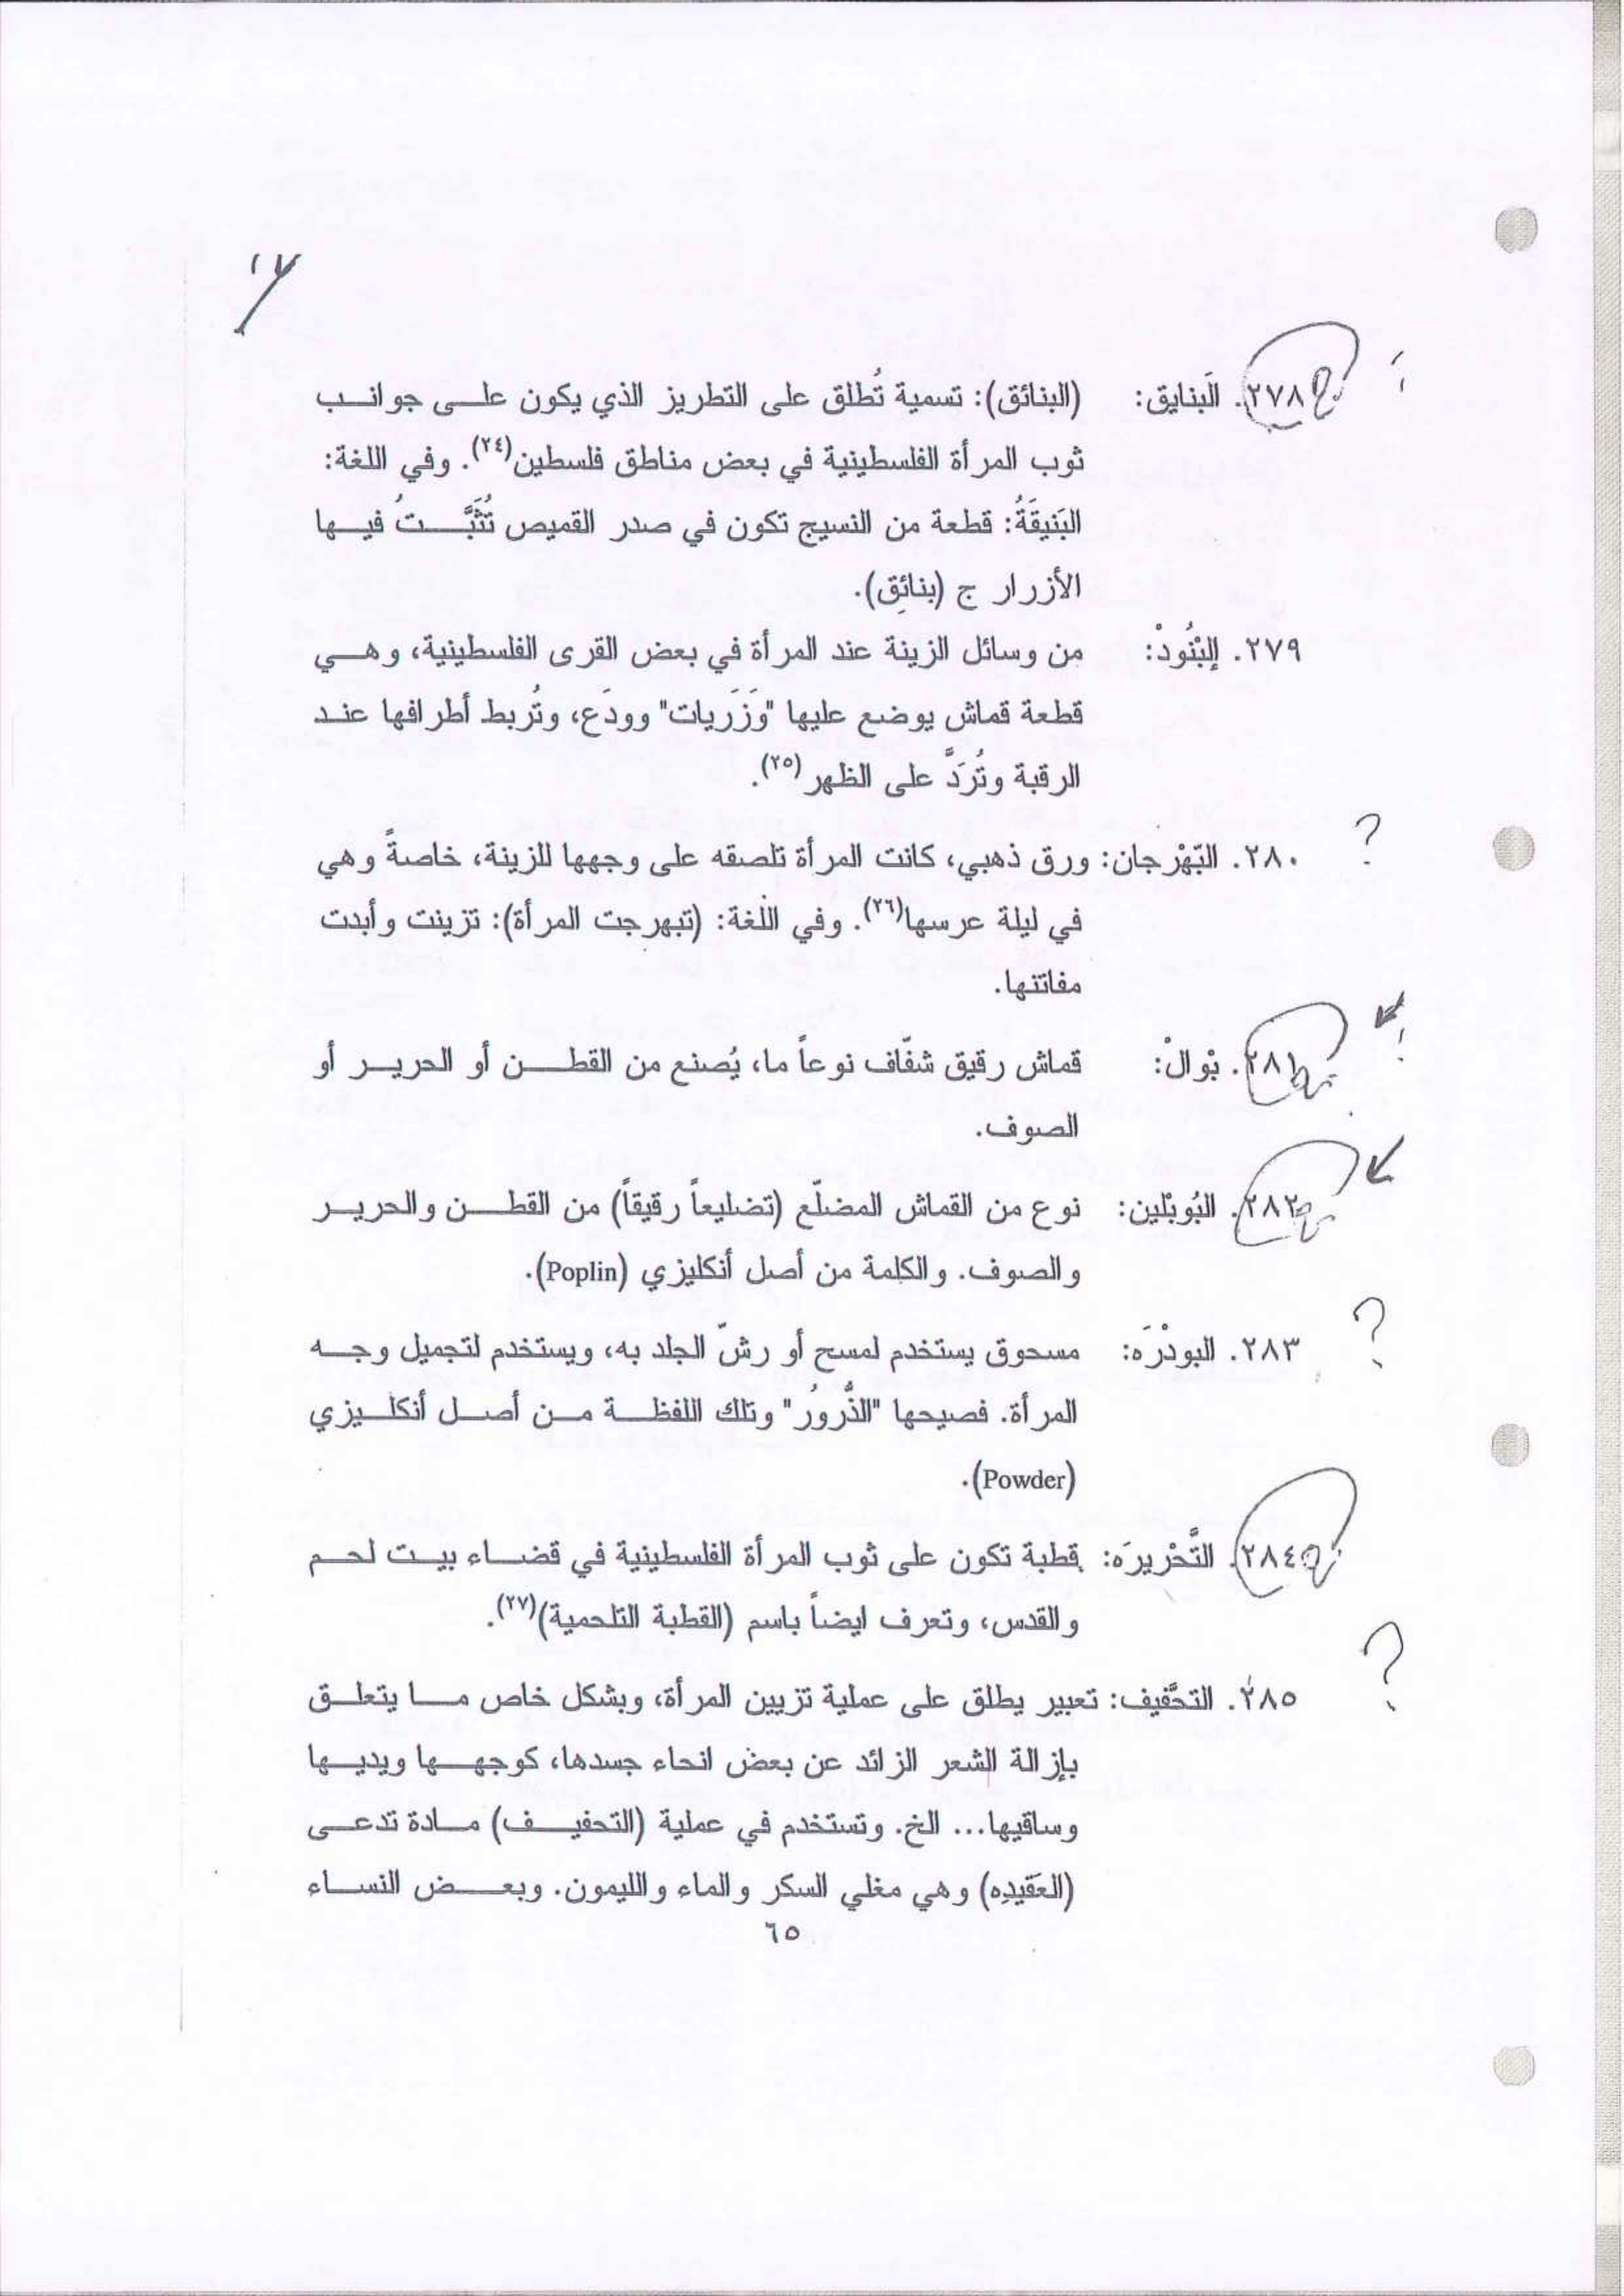 ١٧
٢٧٨. البَنايق: (البنائق): تسمية تُطلق على التطريز الذي يكون على جوانب
ثوب المرأة الفلسطينية في بعض مناطق فلسطين(٢٤). وفي اللغة:
البَنيقَةُ: قطعة من النسيج تكون في صدر القميص تُثَبَّتُ فيها
الأزرار ج (بنائِق).
٢٧٩. اِلبْنُودْ: من وسائل الزينة عند المرأة في بعض القرى الفلسطينية، وهي
قطعة قماش يوضع عليها "وَزَريات" وودَع، وتُربط أطرافها عند
الرقبة وتُرَدَّ على الظهر(٢٥).
٢٨٠. البّهْرجان: ورق ذهبي، كانت المرأة تلصقه على وجهها للزينة، خاصةً وهي
في ليلة عرسها(٢٦). وفي اللغة: (تبهرجت المرأة): تزينت وأبدت
مفاتنها.
٢٨١. بْوالْ: قماش رقيق شفّاف نوعاً ما، يُصنع من القطن أو الحرير أو
الصوف.
٢٨٢. البُوبْلين: نوع من القماش المضلّع (تضليعاً رقيقاً) من القطن والحرير
والصوف. والكلمة من أصل أنكليزي (Poplin).
٢٨٣. البودْرَه: مسحوق يستخدم لمسح أو رشّ الجلد به، ويستخدم لتجميل وجه
المرأة. فصيحها "الذُّرورُ" وتلك اللفظة من أصل أنكليزي
(Powder).
٢٨٤. التَّحْريرَه: قطبة تكون على ثوب المرأة الفلسطينية في قضاء بيت لحم
والقدس، وتعرف ايضاً باسم (القطبة التلحمية)(٢٧).
٢٨٥. التحَّفيف: تعبير يطلق على عملية تزيين المرأة، وبشكل خاص ما يتعلق
بإزالة الشعر الزائد عن بعض انحاء جسدها، كوجهها ويديها
وساقيها... الخ. وتستخدم في عملية (التحفيف) مادة تدعى
(العَقيدِه) وهي مغلي السكر والماء والليمون. وبعض النساء
٦٥